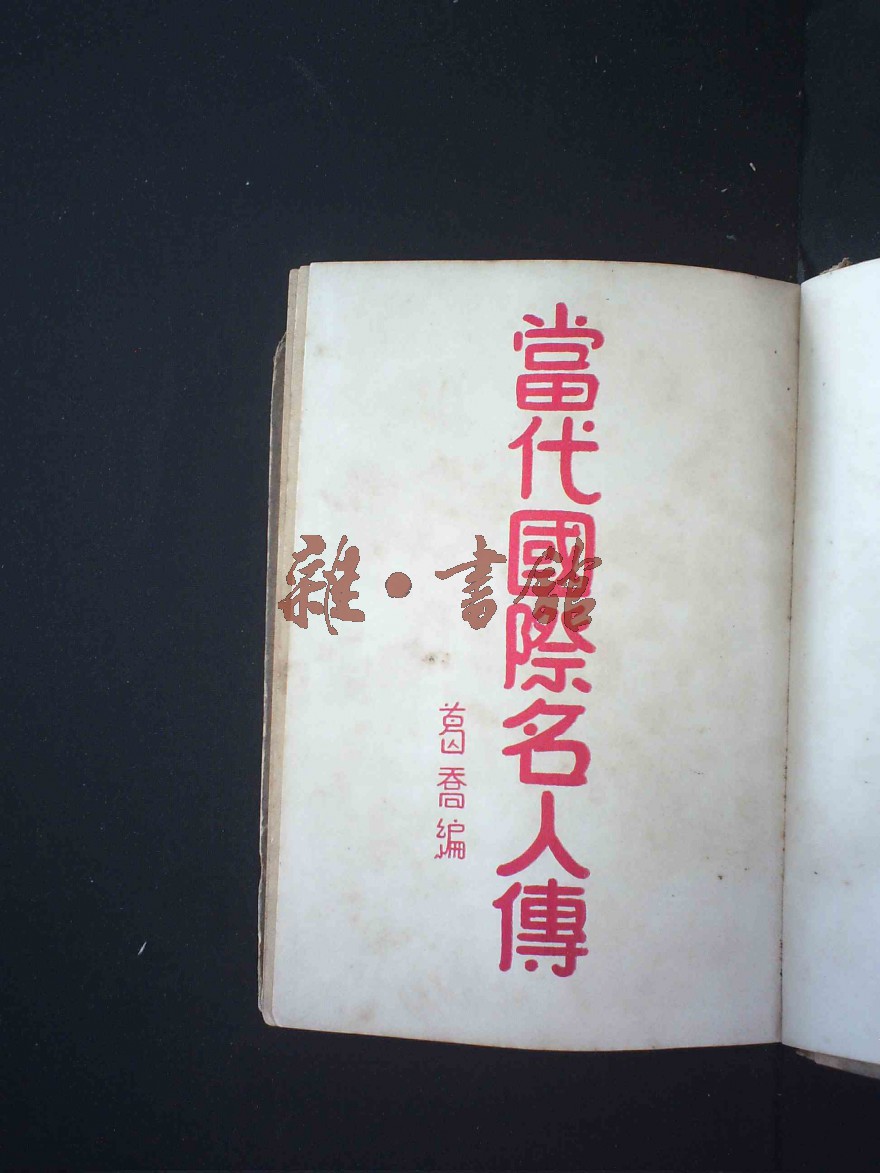 當代國際名人傳
葛喬編
雜·書館